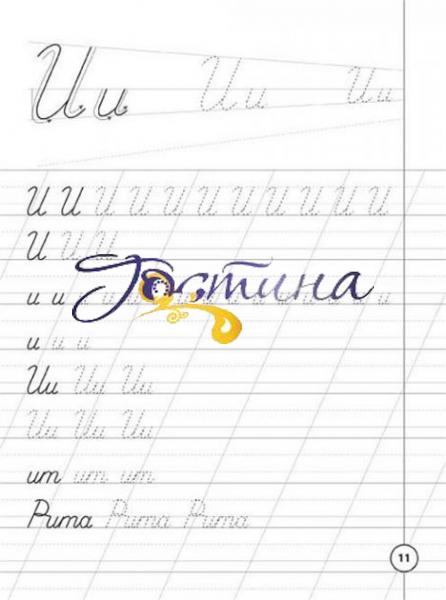 Ии Ии Ии
И И И И И И И И И И И
И И И
Гостина
и и и и и
и и и
Ии Ии Ии
Ии Ии Ии
ит ит ит
Рита Рита Рита
11